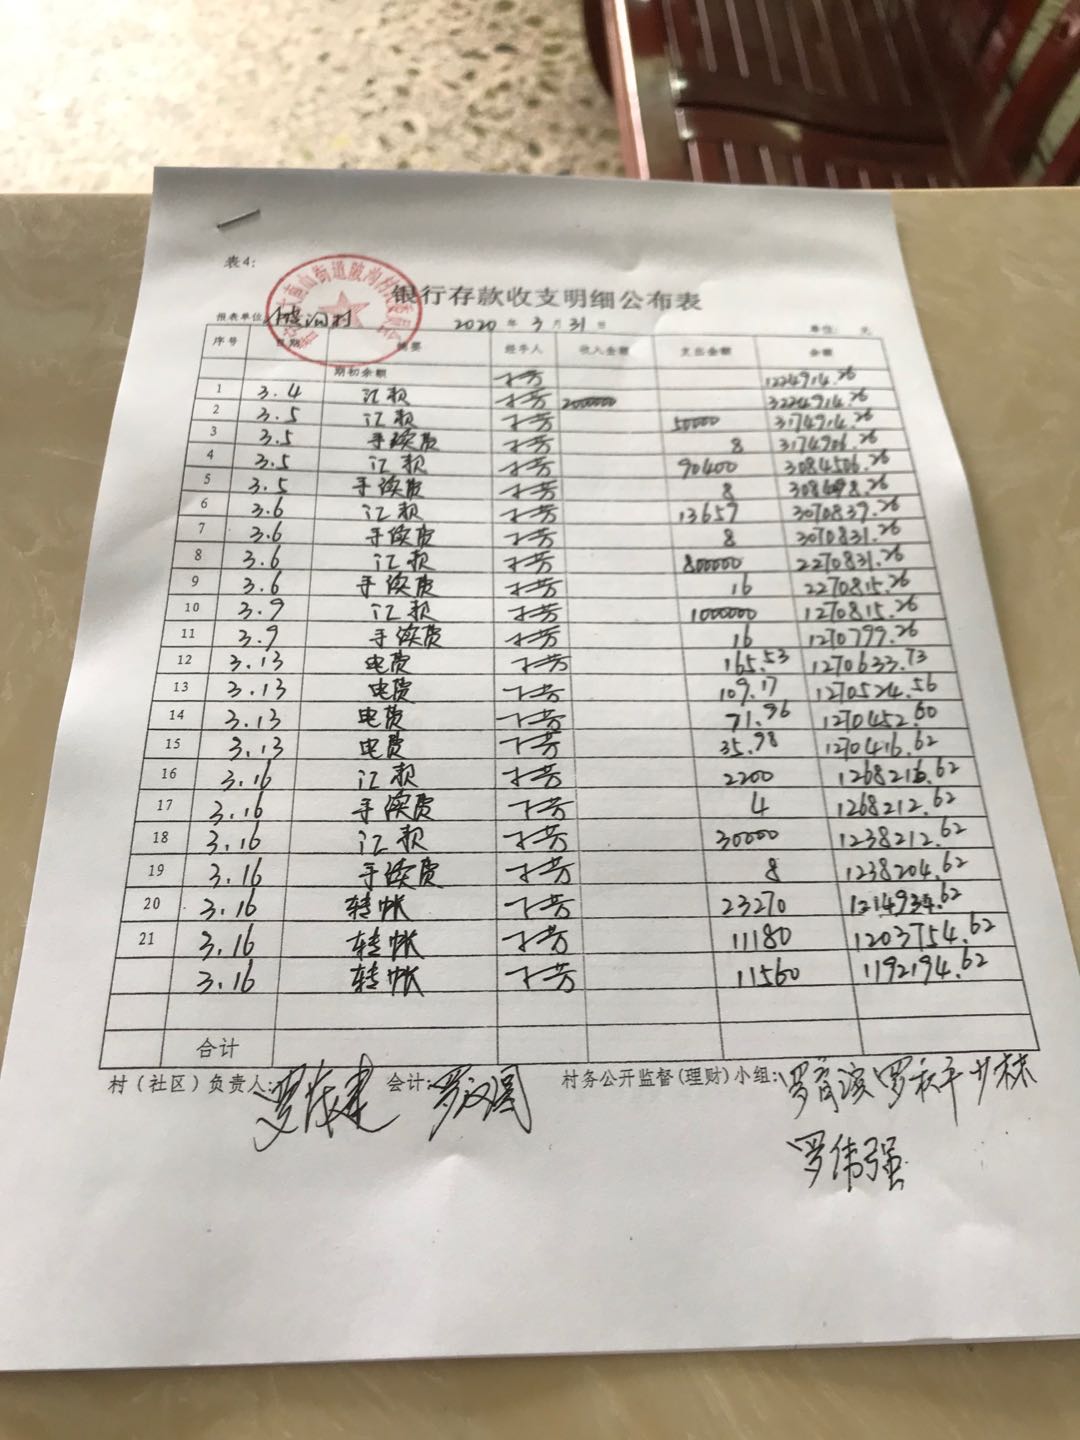 表4:
银行存款收支明细公布表
报表单位: 陂沟村 2020 年 3 月 31 日 单位: 元
序号 日期 摘要 经手人 收入金额 支出金额 余额
期初余额 1224914.26
1 3.4 汇款 2000000 3224914.26
2 3.5 汇款 50000 3174914.26
3 3.5 手续费 8 3174906.26
4 3.5 汇款 90400 3084506.26
5 3.5 手续费 8 3084498.26
6 3.6 汇款 13657 3070839.26
7 3.6 手续费 8 3070831.26
8 3.6 汇款 800000 2270831.26
9 3.6 手续费 16 2270815.26
10 3.9 汇款 1000000 1270815.26
11 3.9 手续费 16 1270799.26
12 3.13 电费 165.53 1270633.73
13 3.13 电费 109.17 1270524.56
14 3.13 电费 71.96 1270452.60
15 3.13 电费 35.98 1270416.62
16 3.16 汇款 2200 1268216.62
17 3.16 手续费 4 1268212.62
18 3.16 汇款 30000 1238212.62
19 3.16 手续费 8 1238204.62
20 3.16 转帐 23270 1214934.62
21 3.16 转帐 11180 1203754.62
3.16 转帐 11560 1192194.62
合计
村(社区)负责人: 会计: 村务公开监督(理财)小组:
罗伟强